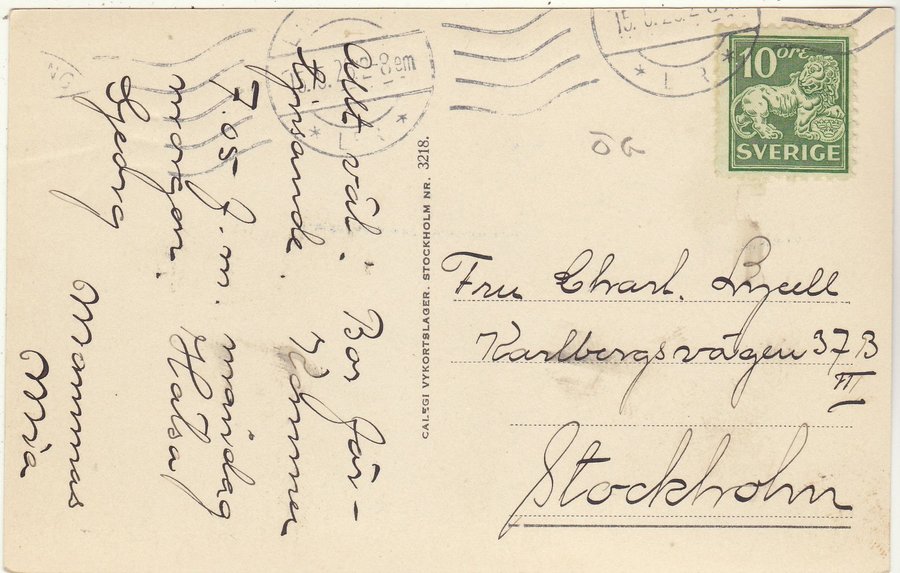 Allt väl! Bor för-
tjusande. Kommer
7.05 f. m. måndag
morgon. Hälsa
Mammas
Mia
CALEGI VYKORTSLAGER. STOCKHOLM NR. 3218.
10 öre
SVERIGE
Fru Charl. Lyell
Karlbergsvägen 37B
III
Stockholm